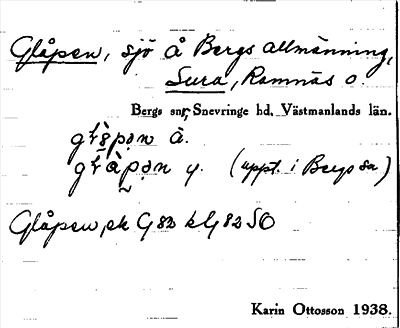 Glåpen, sjö å Bergs allmänning,
Sura, Ramnäs o.
Bergs snr, Snevringe hd, Västmanlands län.
å.
y. (uppt. i Bergs sn)
Glåpen, ek G 82 kG 82 SO
Karin Ottosson 1938.